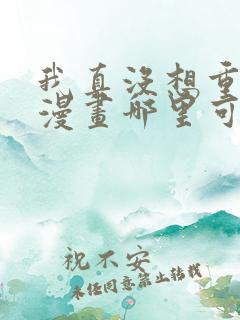 我真没想重
漫畫哪里可
祝不安
未经同意禁止转载